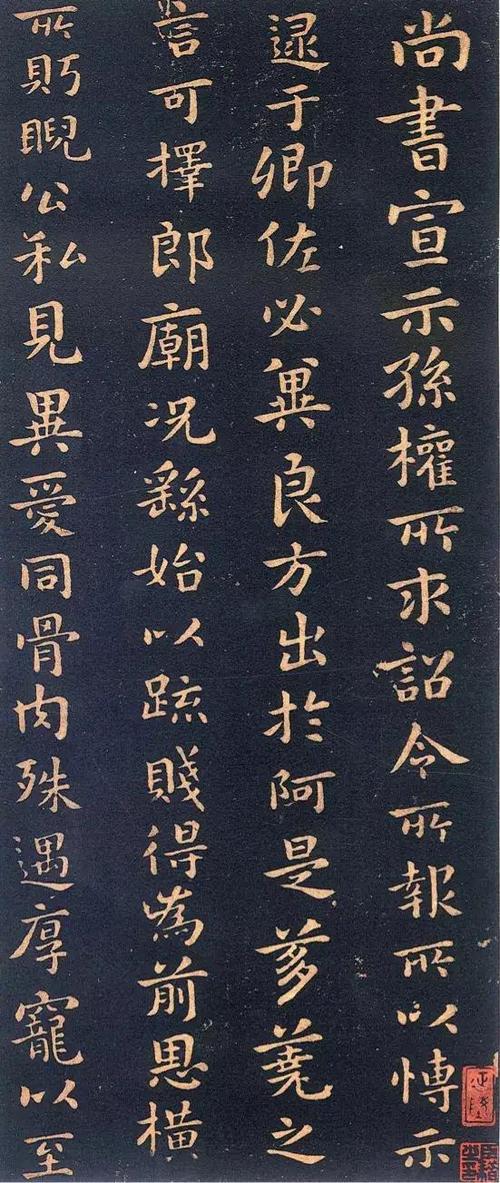 尚書宣示孫權所求詔令所報所以慱示
逮于卿佐必兾良方出於阿是芻蕘之
言可擇郎廟況繇始以疏賤得為前恩橫
所眄睨公私見異愛同骨肉殊遇厚寵以至